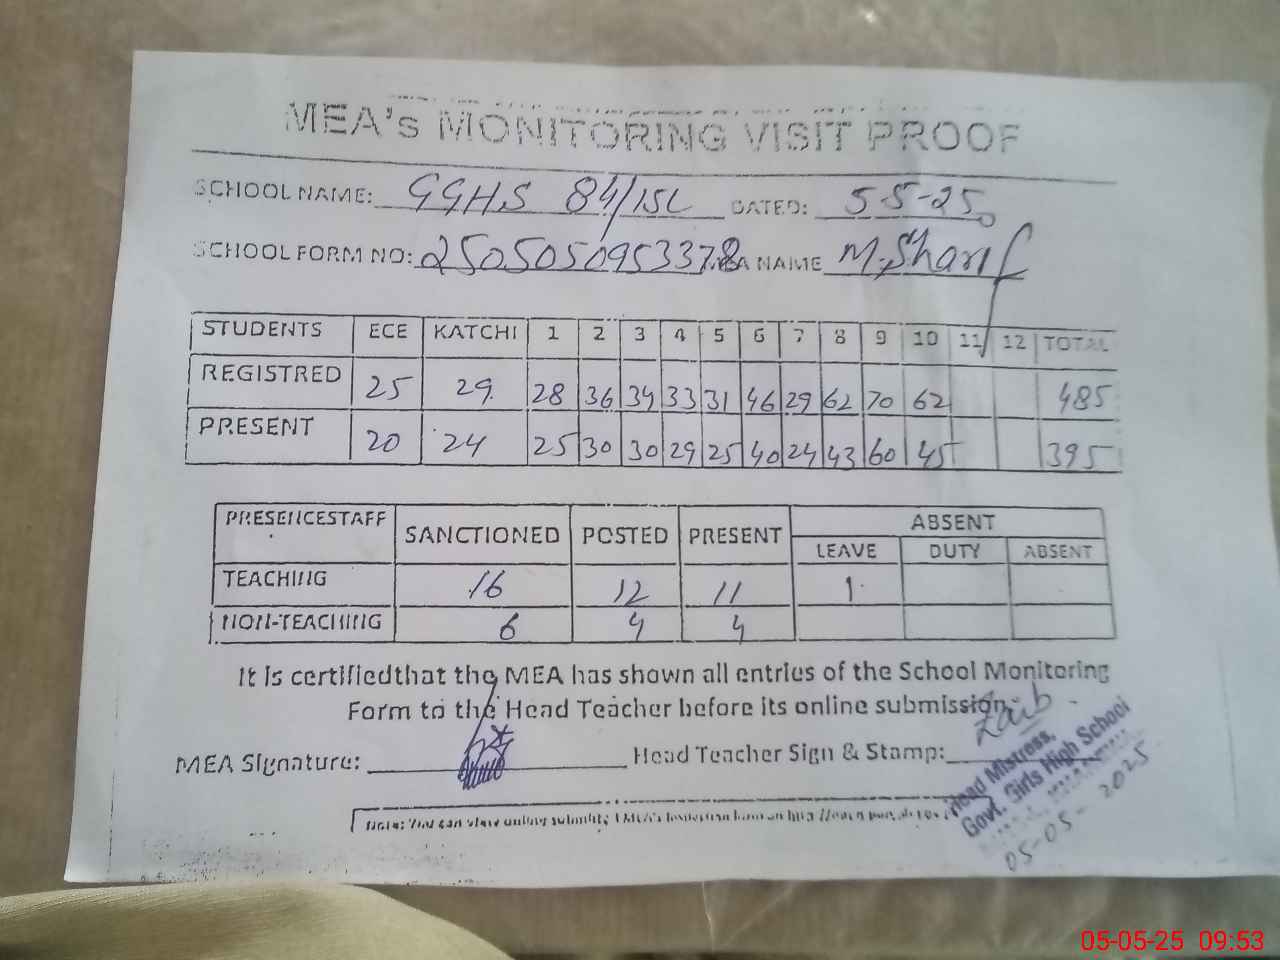 MEA's MONITORING VISIT PROOF
SCHOOL NAME: GGHS 84/15L DATED: 5-5-25
SCHOOL FORM NO: 2505050953378 NAME M. Sharif
STUDENTS ECE KATCHI 1 2 3 4 5 6 7 8 9 10 11 12 TOTAL
REGISTRED 25 29 28 36 34 33 31 46 29 62 70 62 485
PRESENT 20 24 25 30 30 29 25 40 24 43 60 45 395
PRESENCESTAFF SANCTIONED POSTED PRESENT ABSENT
LEAVE DUTY ABSENT
TEACHING 16 12 11 1
NON-TEACHING 6 4 4
It is certifiedthat the MEA has shown all entries of the School Monitoring
Form to the Head Teacher before its online submission.
Zaib
MEA Signature: Head Teacher Sign & Stamp:
Head Mistress,
Govt. Girls High School
05-05-2025
Note: You can view online
05-05-25 09:53